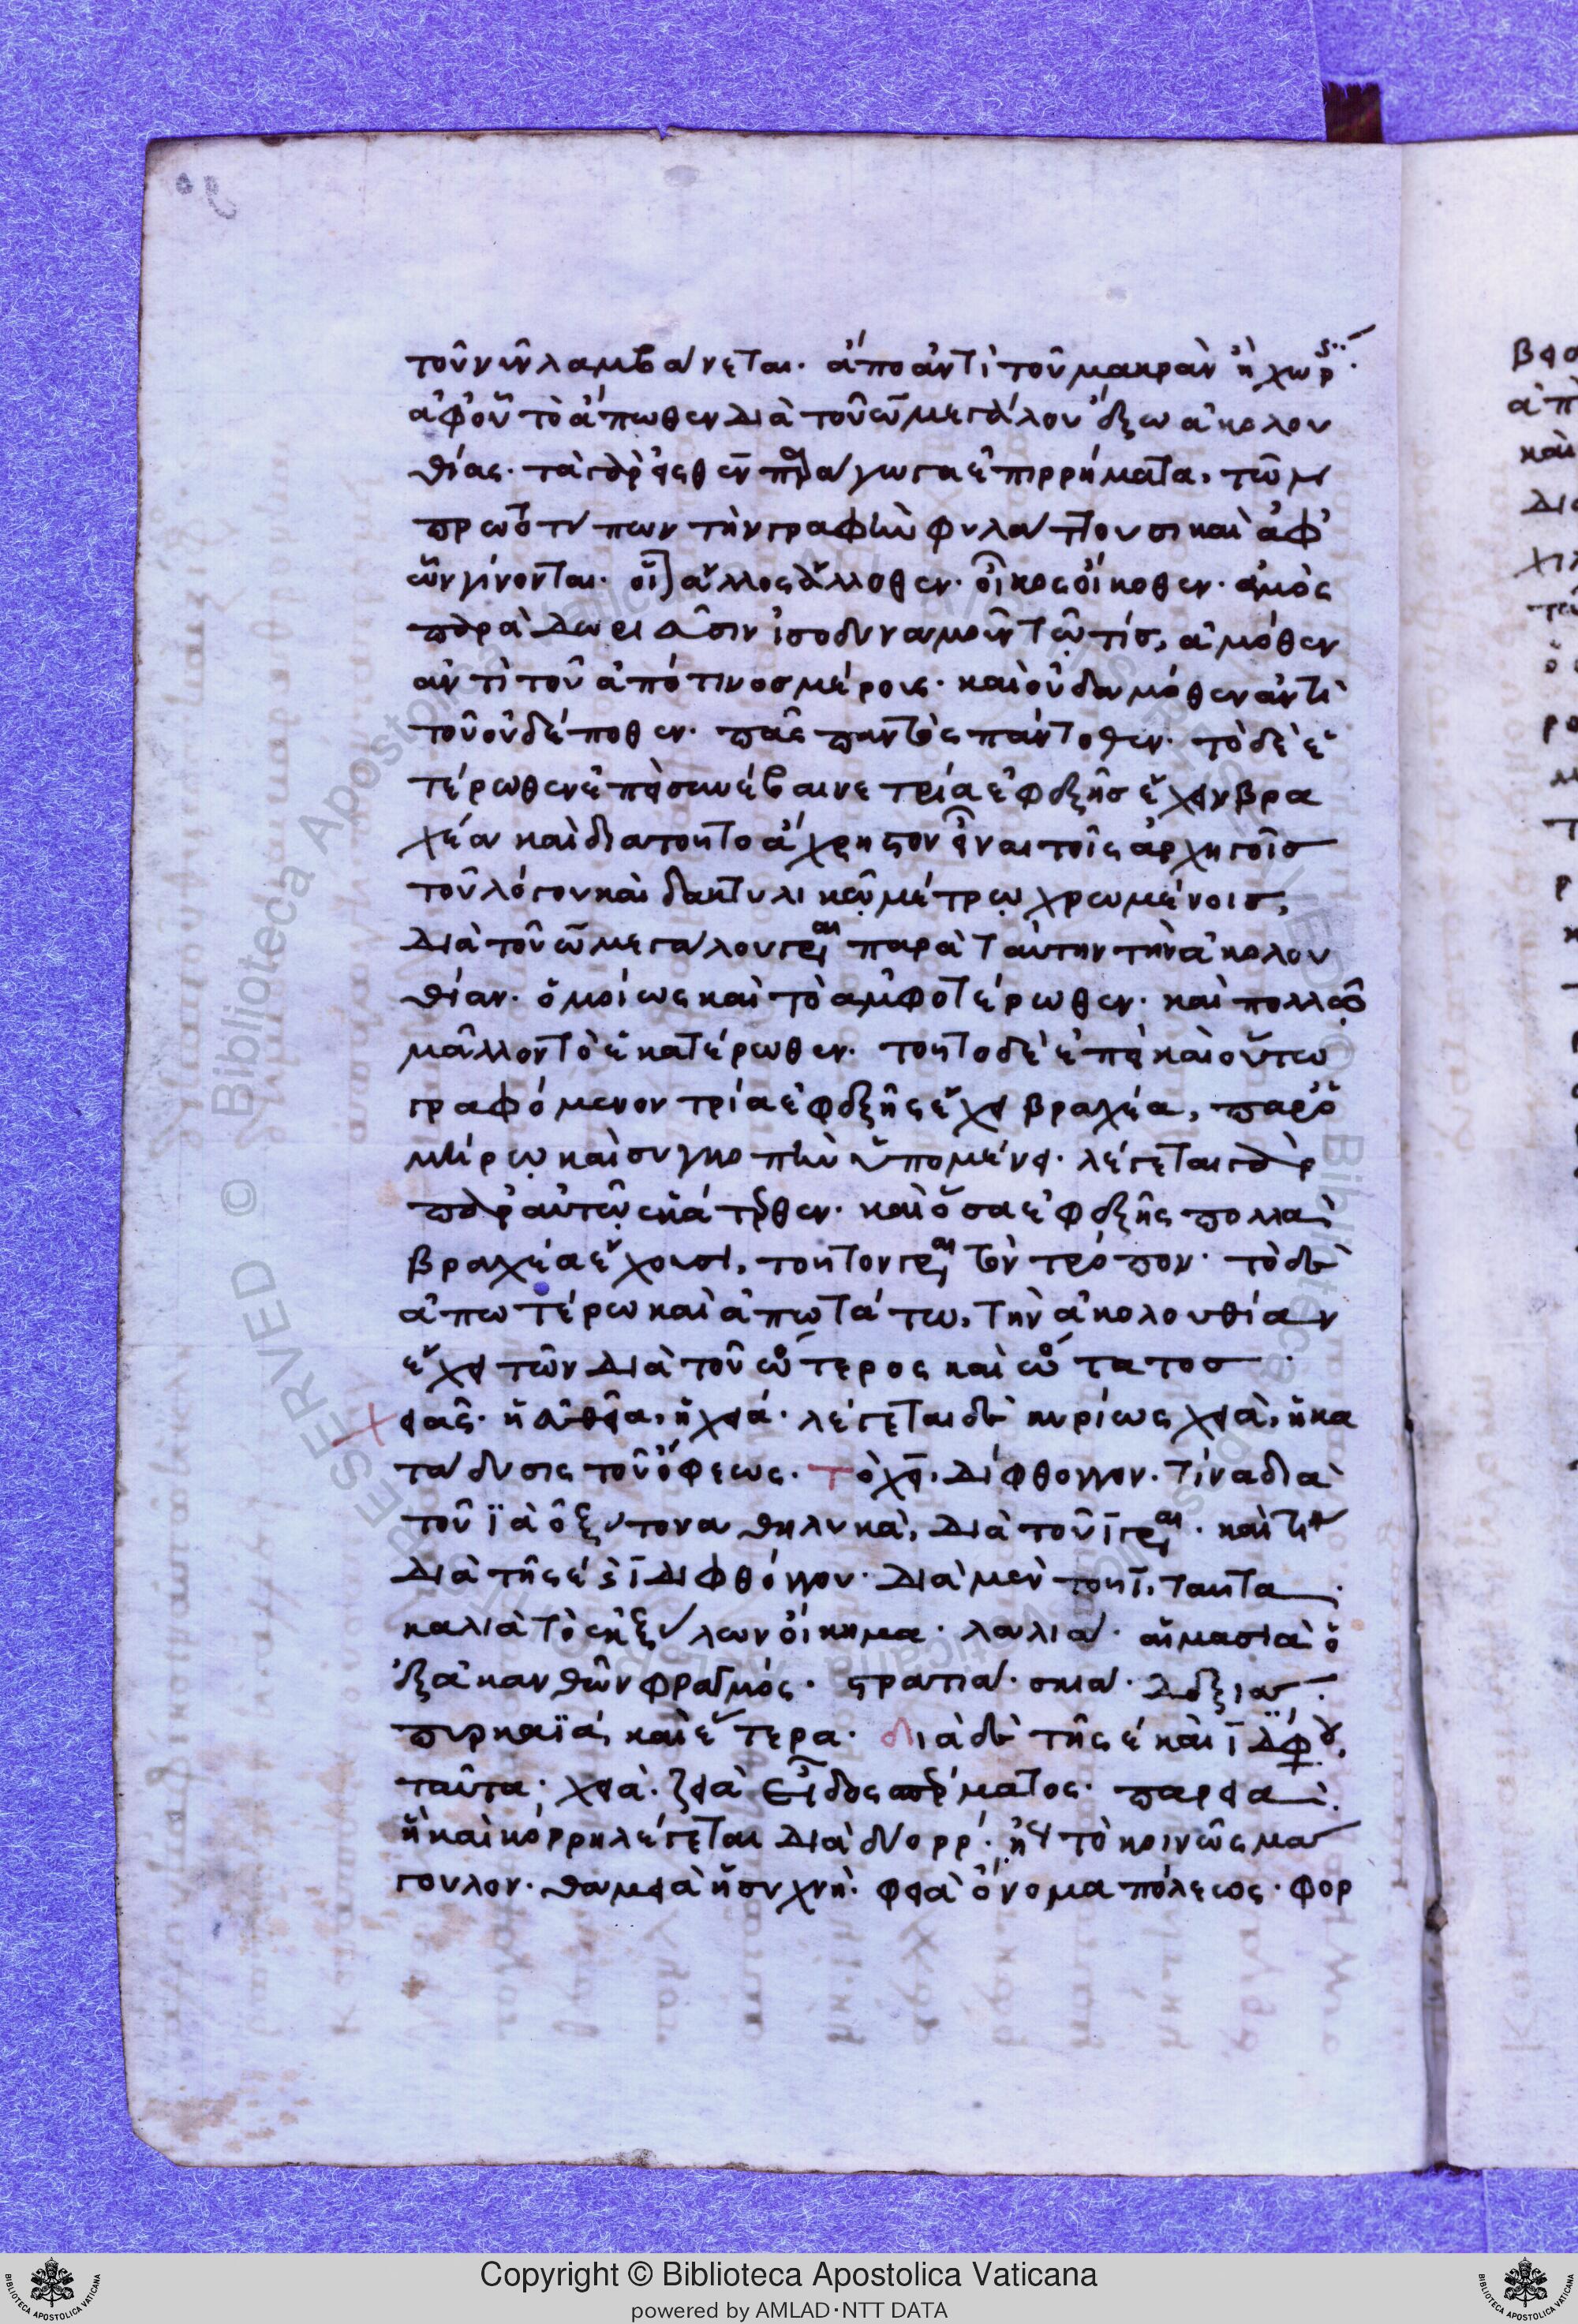 τοῦ νῦν λαμβάνεται. ἄπο ἀντὶ τοῦ μακρὰν ἢ χωρὶς.
ἀφ' οὗ τὸ ἄπωθεν διὰ τοῦ ω μεγάλου ἔξω ἀκολου
θίας. τὰ γὰρ εἰς θεν παραγωγα ἐπιρρήματα, τῶν
πρωτοτύπων τὴν γραφὴν φυλάττουσι καὶ ἀφ'
ὧν γίνονται. οἷον ἄλλος ἄλλοθεν. οἶκος οἴκοθεν. ἀμὸς
παρὰ Δωριεῦσιν ἰσοδυναμοῦν τῶ τίσ, ἀμόθεν
ἀντὶ τοῦ ἀπό τινοσ μέρους. καὶ οὐδαμόθεν ἀντὶ
τοῦ οὐδέποθεν. πᾶς παντὸς πάντοθεν. τὸ δὲ ἑ
τέρωθεν ἐπεὶ συνέβαινε τρία ἐφεξῆσ ἔχειν βρα
χέα καὶ διατοῦτο ἄχρηστον εἶναι τοῖς ἀρχηγοῖσ
τοῦ λόγου καὶ δακτυλικῶ μέτρω χρωμένοισ,
διὰ τοῦ ω μεγάλου γράφεται παρὰ ταύτην τὴν ἀκολου
θίαν. ὁμοίως καὶ τὸ ἀμφοτέρωθεν. καὶ πολλῶ
μᾶλλον τὸ ἑκατέρωθεν. τοῦτο δὲ ἐπεὶ καὶ οὕτω
γραφόμενον τρία ἐφεξῆς ἔχει βραχέα, παρ' Ὁ
μήρω καὶ συγκοπὴν ὑπομένει. λέγεται γὰρ
παρ' αὐτῶ ἑκάτερθεν. καὶ ὅσα ἐφεξῆς πολλὰ
βραχέα ἔχουσι, τοῦτον γράφεται τὸν τρόπον. τὸ δὲ
ἀπωτέρω καὶ ἀπωτάτω, τὴν ἀκολουθίαν
ἔχει τῶν διὰ τοῦ ώτερος καὶ ώτατοσ.
λέγεται δὲ κυρίως χειὰ, ἡ κα
τάδυσις τοῦ ὄφεως. τὸ χει, δίφθογγον. τίνα διὰ
τοῦ ϊὰ ὀξύτονα θηλυκὰ, διὰ τοῦ ι γράφεται. καὶ τίνα
διὰ τῆς ε ι διφθόγγου. διὰ μὲν τοῦ ι, ταῦτα
καλιὰ τὸ ἐκ ξύλων οἴκημα. λαλιά. αἱμασιὰ ὁ
ἐξ ἀκανθῶν φραγμός. στρατιά. σκιά. δεξιά.
πυρκαϊά, καὶ ἕτερα. διὰ δὲ τῆς ε καὶ ι διφθόγγου,
ταῦτα, χειὰ. ζειὰ εἶδος σπέρματος. παρειὰ.
ἣ καὶ κόρρη λέγεται διὰ δύο ρρ. ἤγουν τὸ κοινῶς μά
γουλον. θαμειὰ ἡ συχνή. φειὰ ὄνομα πόλεως. φορ